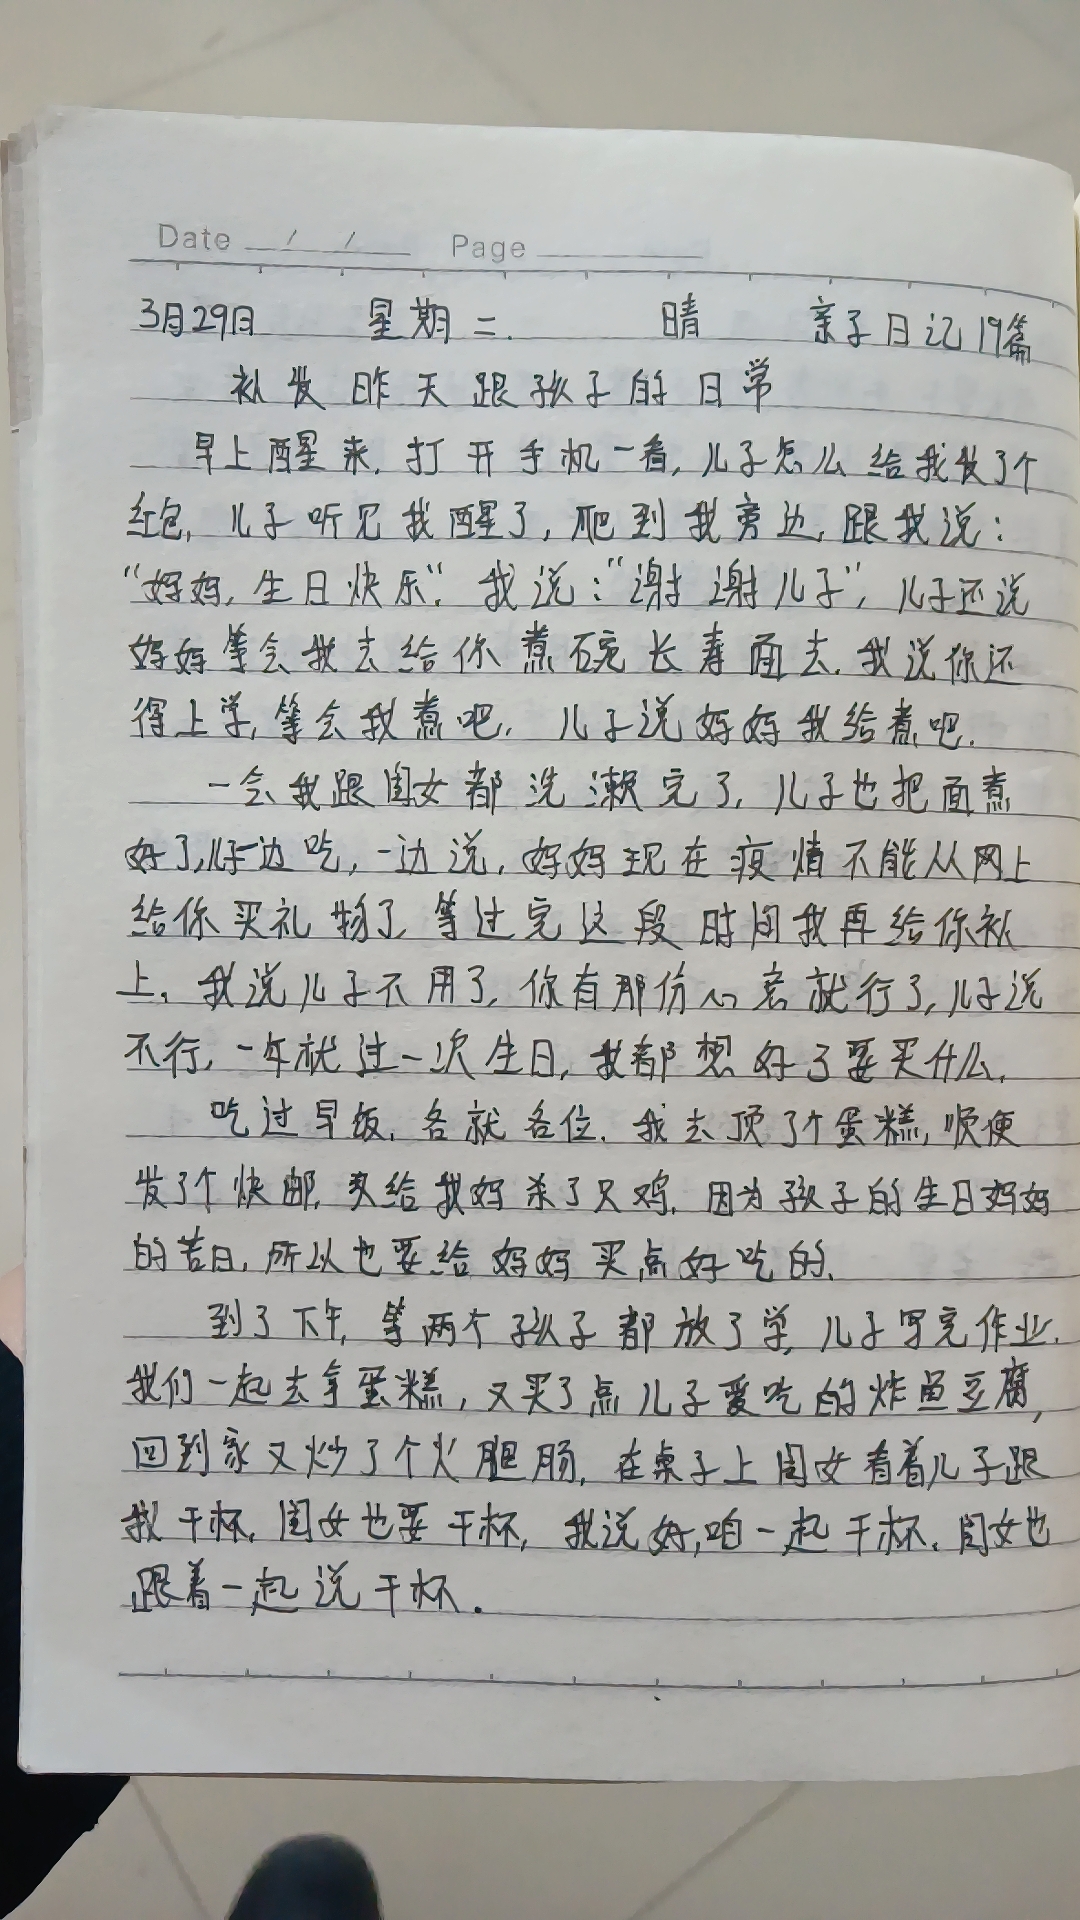 Date / / Page
3月29日 星期二. 晴 亲子日记19篇
补发昨天跟孩子的日常
早上醒来,打开手机一看,儿子怎么给我发了个
红包,儿子听见我醒了,爬到我旁边,跟我说:
“妈妈,生日快乐”,我说:“谢谢儿子”,儿子还说
妈妈等会我去给你煮碗长寿面去.我说你还
得上学,等会我煮吧,儿子说妈妈我给煮吧.
一会我跟闺女都洗濑完了,儿子也把面煮
好了,儿子一边吃,一边说,妈妈现在疫情不能从网上
给你买礼物了,等过完这段时间我再给你补
上,我说儿子不用了,你有那份心意就行了,儿子说
不行,一年就过一次生日,我都想好了要买什么,
吃过早饭,各就各位.我去顶了个蛋糕,顺便
发了个快邮,又给我妈杀了只鸡,因为孩子的生日妈妈
的苦日,所以也要给妈妈买点好吃的,
到了下午,等两个孩子都放了学,儿子写完作业.
我们一起去拿蛋糕,又买了点儿子爱吃的炸鱼豆腐,
回到家又炒了个火腿肠,在桌子上闺女看着儿子跟
我干杯,闺女也要干杯,我说好,咱一起干杯.闺女也
跟着一起说干杯.